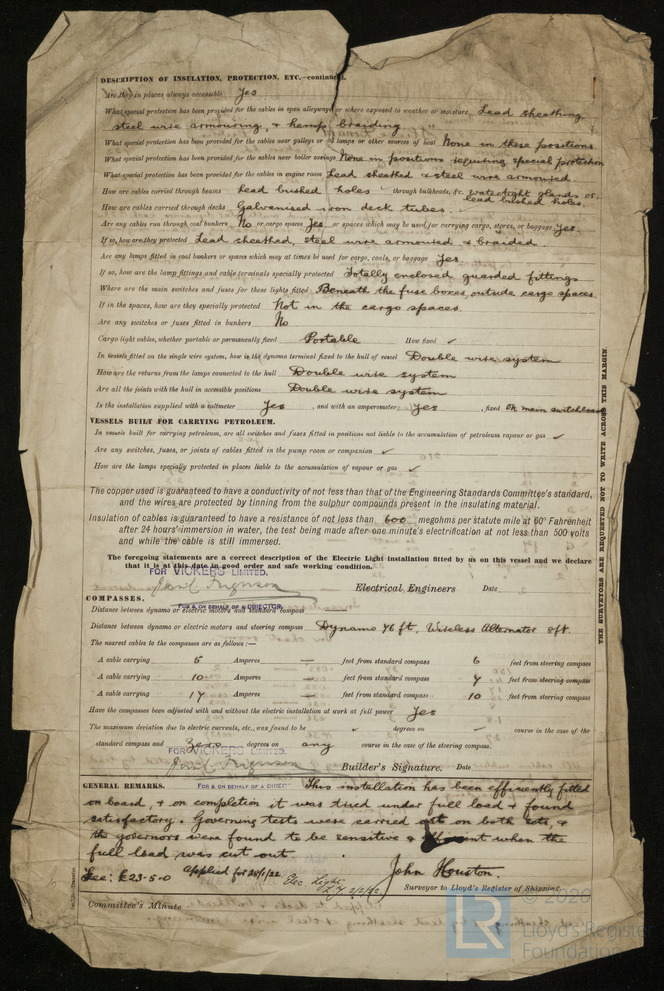 DESCRIPTION OF INSULATION, PROTECTION, ETC.—continued.
Are they in places always accessible Yes
What special protection has been provided for the cables in open alleyways or where exposed to weather or moisture Lead sheathing
steel wire armouring, & hemp braiding.
What special protection has been provided for the cables near galleys or oil lamps or other sources of heat None in these positions
What special protection has been provided for the cables near boiler casings None in positions requiring special protection
What special protection has been provided for the cables in engine room Lead sheathed & steel wire armoured.
How are cables carried through beams Lead bushed holes through bulkheads, &c. watertight glands or lead bushed holes.
How are cables carried through decks Galvanised iron deck tubes.
Are any cables run through coal bunkers No or cargo spaces Yes or spaces which may be used for carrying cargo, stores, or baggage Yes.
If so, how are they protected Lead sheathed, steel wire armoured & braided.
Are any lamps fitted in coal bunkers or spaces which may at times be used for cargo, coals, or baggage Yes
If so, how are the lamp fittings and cable terminals specially protected Totally enclosed guarded fittings
Where are the main switches and fuses for these lights fitted Beneath the fuse boxes, outside cargo spaces.
If in the spaces, how are they specially protected Not in the cargo spaces.
Are any switches or fuses fitted in bunkers No
Cargo light cables, whether portable or permanently fixed Portable How fixed ✓
In vessels fitted on the single wire system, how is the dynamo terminal fixed to the hull of vessel Double wire system
How are the returns from the lamps connected to the hull Double wire system
Are all the joints with the hull in accessible positions Double wire system
Is the installation supplied with a voltmeter Yes, and with an amperemeter Yes, fixed On main switchboard
VESSELS BUILT FOR CARRYING PETROLEUM.
In vessels built for carrying petroleum, are all switches and fuses fitted in positions not liable to the accumulation of petroleum vapour or gas ✓
Are any switches, fuses, or joints of cables fitted in the pump room or companion ✓
How are the lamps specially protected in places liable to the accumulation of vapour or gas ✓
The copper used is guaranteed to have a conductivity of not less than that of the Engineering Standards Committee's standard,
and the wires are protected by tinning from the sulphur compounds present in the insulating material.
Insulation of cables is guaranteed to have a resistance of not less than 600 megohms per statute mile at 60° Fahrenheit
after 24 hours' immersion in water, the test being made after one minute's electrification at not less than 500 volts
and while the cable is still immersed.
The foregoing statements are a correct description of the Electric Light installation fitted by us on this vessel and we declare
that it is at this date in good order and safe working condition.
FOR VICKERS LIMITED.
Electrical Engineers Date
FOR & ON BEHALF OF A DIRECTOR.
COMPASSES.
Distance between dynamo or electric motors and standard compass
Distance between dynamo or electric motors and steering compass Dynamo 46 ft, Wireless Alternator 8ft.
The nearest cables to the compasses are as follows:—
A cable carrying 5 Amperes — feet from standard compass 6 feet from steering compass
A cable carrying 10 Amperes — feet from standard compass 7 feet from steering compass
A cable carrying 14 Amperes — feet from standard compass 10 feet from steering compass
Have the compasses been adjusted with and without the electric installation at work at full power Yes
The maximum deviation due to electric currents, etc., was found to be ✓ degrees on — course in the case of the
standard compass and Zero degrees on any course in the case of the steering compass.
FOR VICKERS LIMITED.
Builder's Signature. Date
FOR & ON BEHALF OF A DIRECT
GENERAL REMARKS. This installation has been efficiently fitted
on board, & on completion it was tried under full load & found
satisfactory. Governing tests were carried out on both sets, &
the governors were found to be sensitive & when the
full load was cut out.
Fee: £23-5-0 Applied for 28/1/22 Elec Light John Houston.
Surveyor to Lloyd's Register of Shipping.
Committee's Minute
THE SURVEYORS ARE REQUESTED NOT TO WRITE ACROSS THIS MARGIN.
© 2020
LR
Lloyd's Register
Foundation